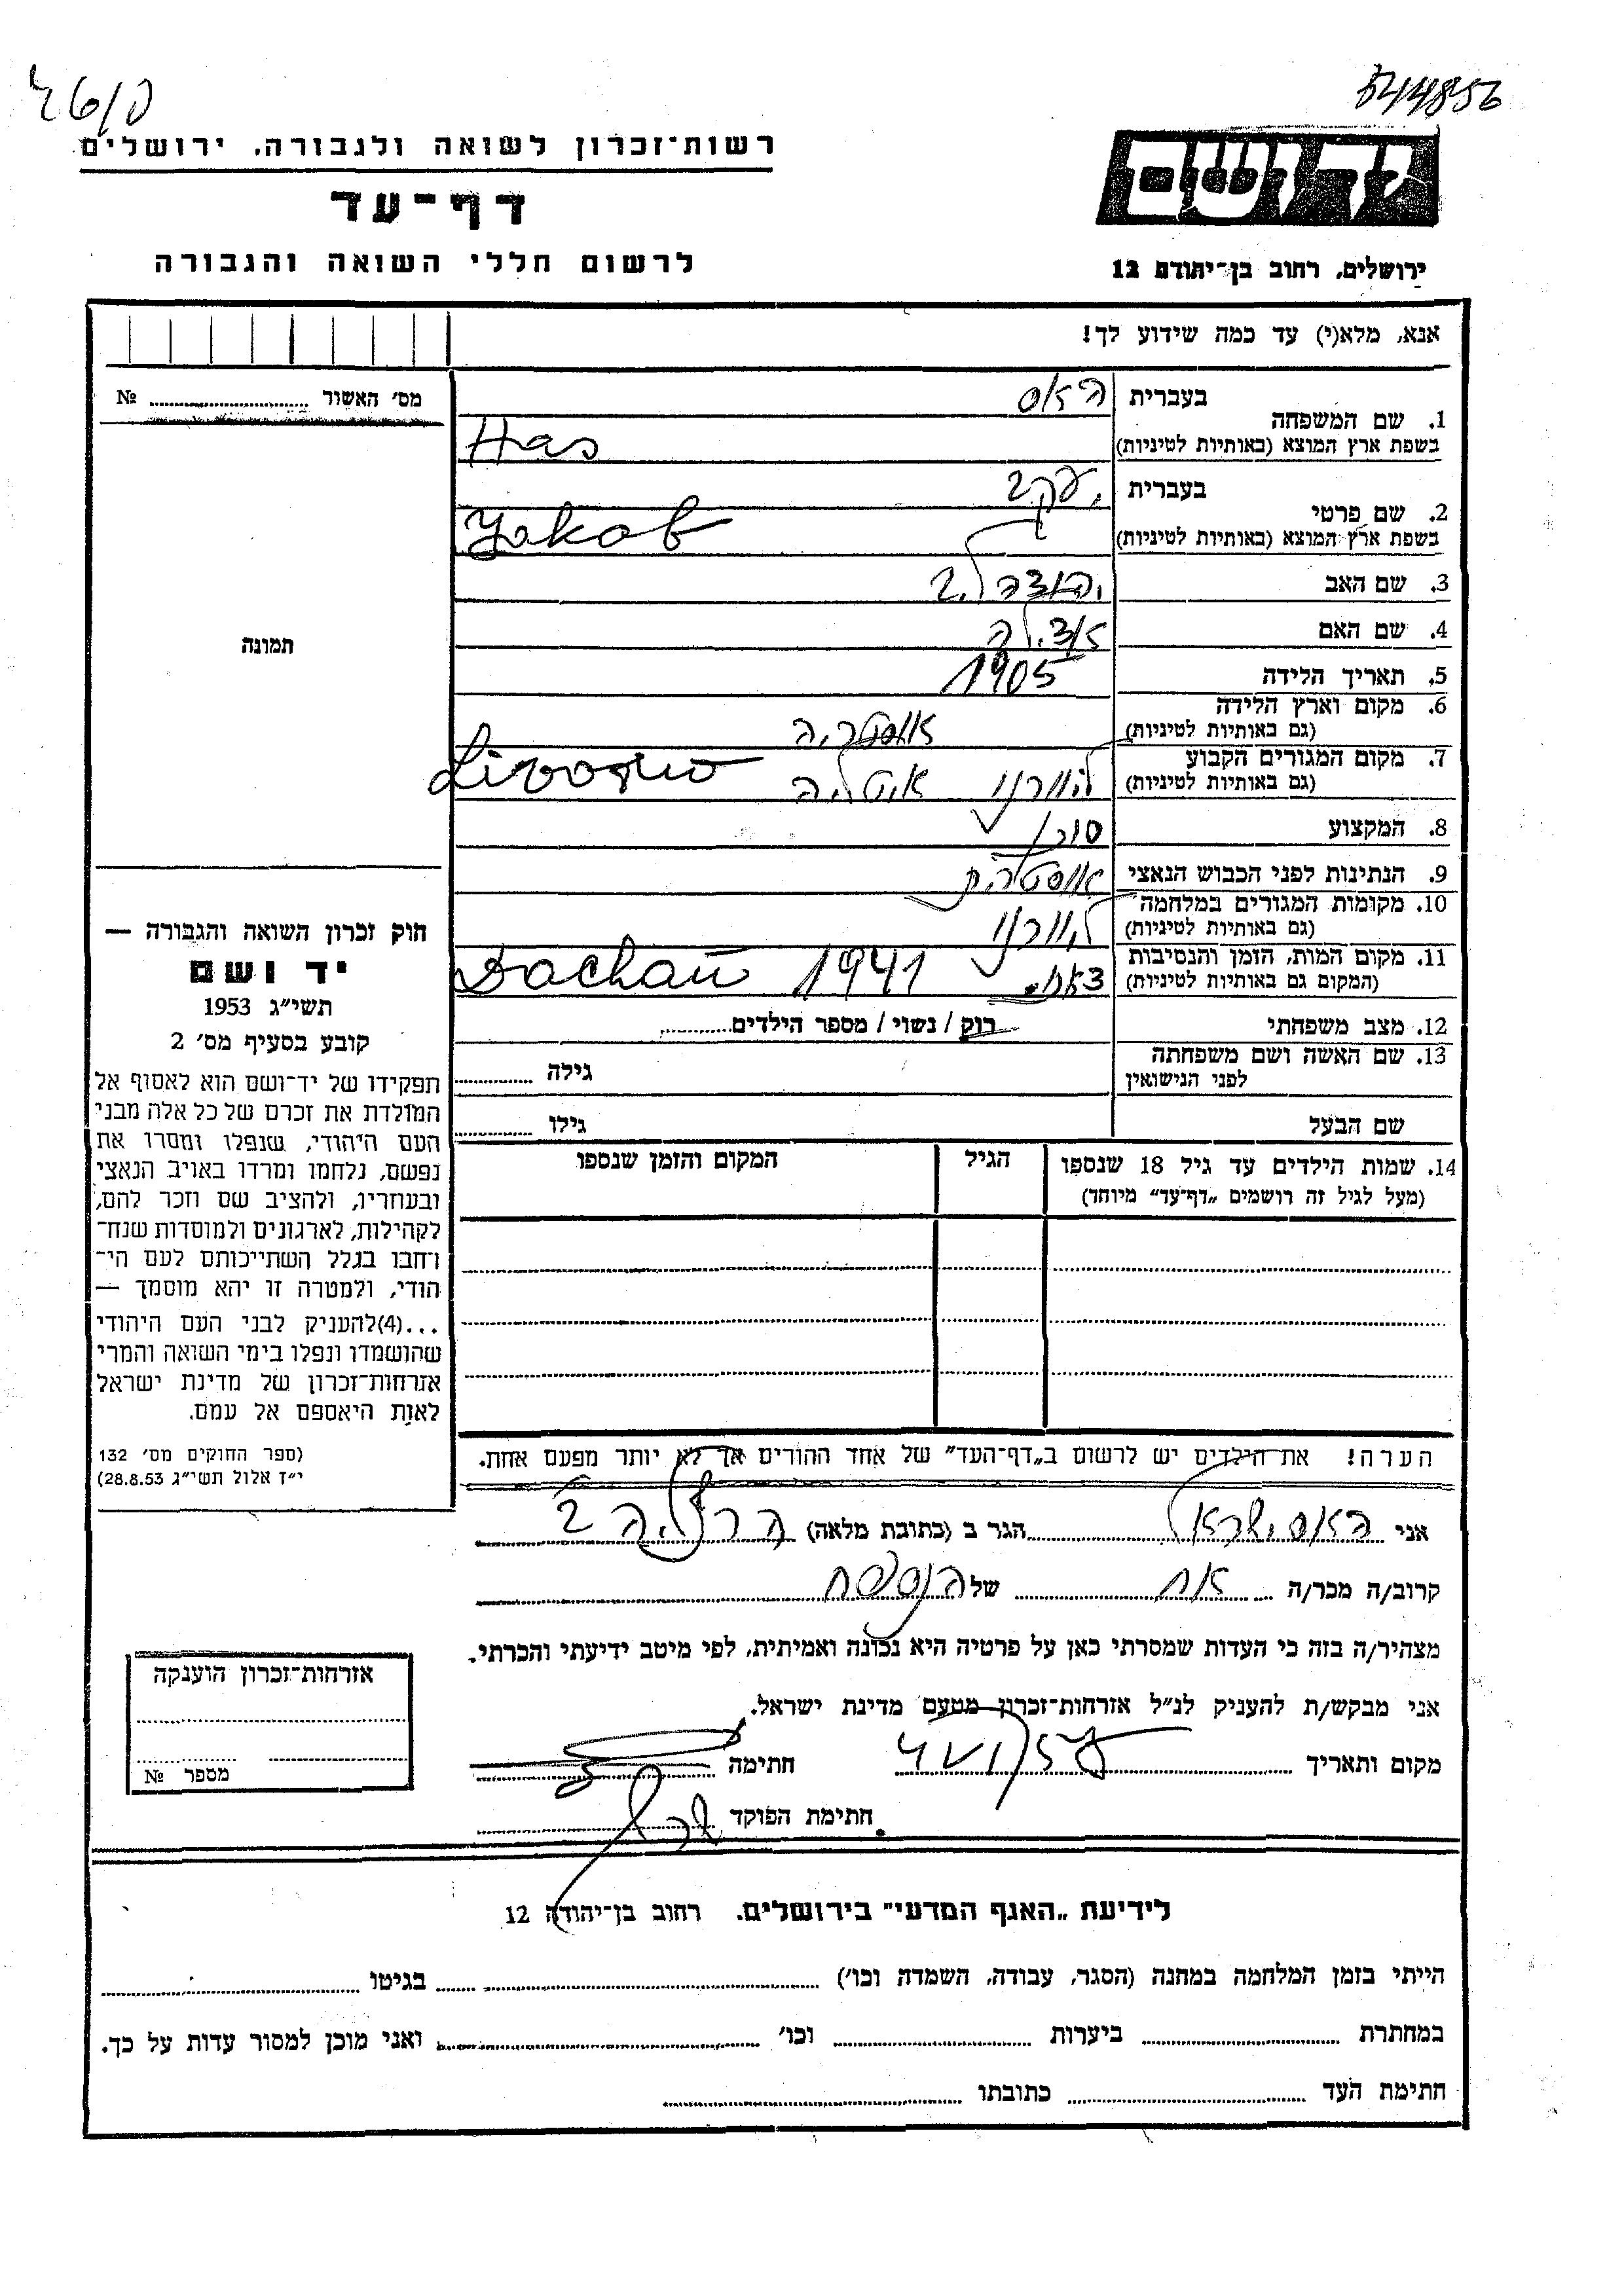 544856
רשות־זכרון לשואה ולגבורה. ירושלים
דף־עד
לרשום חללי השואה והגבורה
ירושלים, רחוב בן־יהודה 12
אנא, מלא(י) עד כמה שידוע לך!
מס׳ האשור № 
1. שם המשפחה
בעברית האס
בשפת ארץ המוצא (באותיות לטיניות) Has
2. שם פרטי
בעברית יעקב
בשפת ארץ המוצא (באותיות לטיניות) Yakob
3. שם האב
4. שם האם
5. תאריך הלידה 1905
6. מקום וארץ הלידה אוסטריה
(גם באותיות לטיניות)
7. מקום המגורים הקבוע ליוורנו איטליה Livorno
(גם באותיות לטיניות)
8. המקצוע סוכן
9. הנתינות לפני הכבוש הנאצי אוסטרית
10. מקומות המגורים במלחמה ליוורנו
(גם באותיות לטיניות)
11. מקום המות, הזמן והנסיבות 1941 Dachau
(המקום גם באותיות לטיניות)
12. מצב משפחתי רוק / נשוי / מספר הילדים
13. שם האשה ושם משפחתה
לפני הנישואין גילה
שם הבעל גילו
14. שמות הילדים עד גיל 18 שנספו הגיל המקום והזמן שנספו
(מעל לגיל זה רושמים „דף־עד״ מיוחד)
הערה! את הילדים יש לרשום ב„דף־העד״ של אחד ההורים אך לא יותר מפעם אחת.
תמונה
חוק זכרון השואה והגבורה —
יד ושם
תשי״ג 1953
קובע בסעיף מס׳ 2
תפקידו של יד־ושם הוא לאסוף אל
המולדת את זכרם של כל אלה מבני
העם היהודי, שנפלו ומסרו את
נפשם, נלחמו ומרדו באויב הנאצי
ובעוזריו, ולהציב שם וזכר להם,
לקהילות, לארגונים ולמוסדות שנח־
רחבו בגלל השתייכותם לעם הי־
הודי, ולמטרה זו יהא מוסמך —
...(4)להעניק לבני העם היהודי
שהושמדו ונפלו בימי השואה והמרי
אזרחות־זכרון של מדינת ישראל
לאות היאספם אל עמם.
(ספר החוקים מס׳ 132
י״ז אלול תשי״ג 28.8.53)
אני האס ישראל הגר ב (כתובת מלאה) הרצליה ב
קרוב/ה מכר/ה אח של הנספה
מצהיר/ה בזה כי העדות שמסרתי כאן על פרטיה היא נכונה ואמיתית, לפי מיטב ידיעתי והכרתי.
אני מבקש/ת להעניק לנ״ל אזרחות־זכרון מטעם מדינת ישראל.
מקום ותאריך חתימה
חתימת הפוקד
אזרחות־זכרון הוענקה
מספר №
לידיעת „האגף המדעי״ בירושלים. רחוב בן־יהודה 12
הייתי בזמן המלחמה במחנה (הסגר, עבודה, השמדה וכו׳) בגיטו
במחתרת ביערות וכו׳ ואני מוכן למסור עדות על כך.
חתימת העד כתובתו